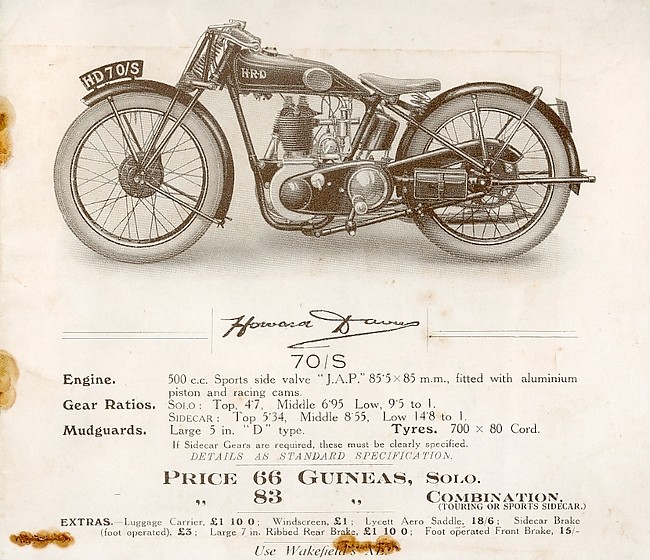 HD70/S
H·R·D
Howard Davies
70/S
Engine. 500 c.c. Sports side valve "J.A.P." 85·5×85 m.m., fitted with aluminium
piston and racing cams.
Gear Ratios. SOLO: Top, 4·7, Middle 6·95 Low, 9·5 to 1.
SIDECAR: Top 5·34, Middle 8·55, Low 14·8 to 1.
Mudguards. Large 5 in. "D" type. Tyres. 700 × 80 Cord.
If Sidecar Gears are required, these must be clearly specified.
DETAILS AS STANDARD SPECIFICATION.
PRICE 66 GUINEAS, SOLO.
„ 83 „ COMBINATION.
(TOURING OR SPORTS SIDECAR.)
EXTRAS.—Luggage Carrier, £1 10 0; Windscreen, £1; Lycett Aero Saddle, 18/6; Sidecar Brake
(foot operated), £3; Large 7 in. Ribbed Rear Brake, £1 10 0; Foot operated Front Brake, 15/-
Use Wakefield's